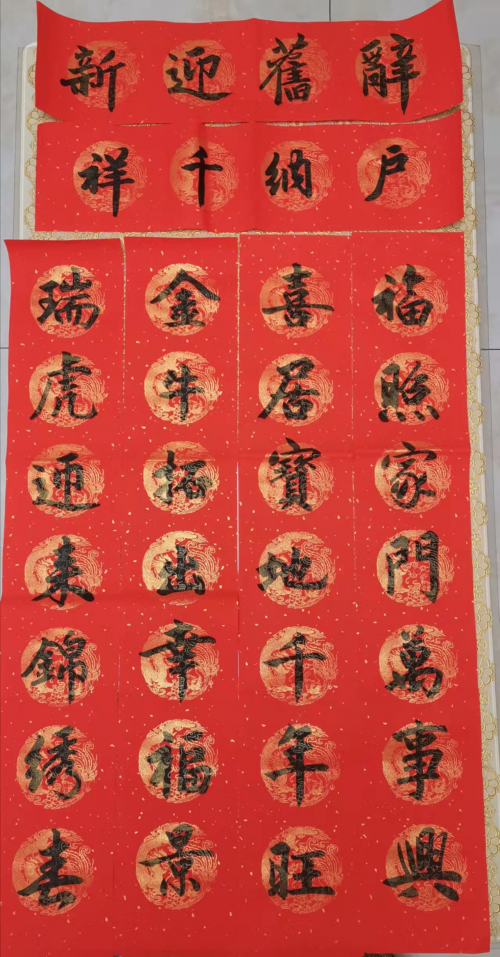 辭舊迎新
户納千祥
福照家門萬事興
喜居寶地千年旺
金牛拓出幸福景
瑞虎迎来錦绣春